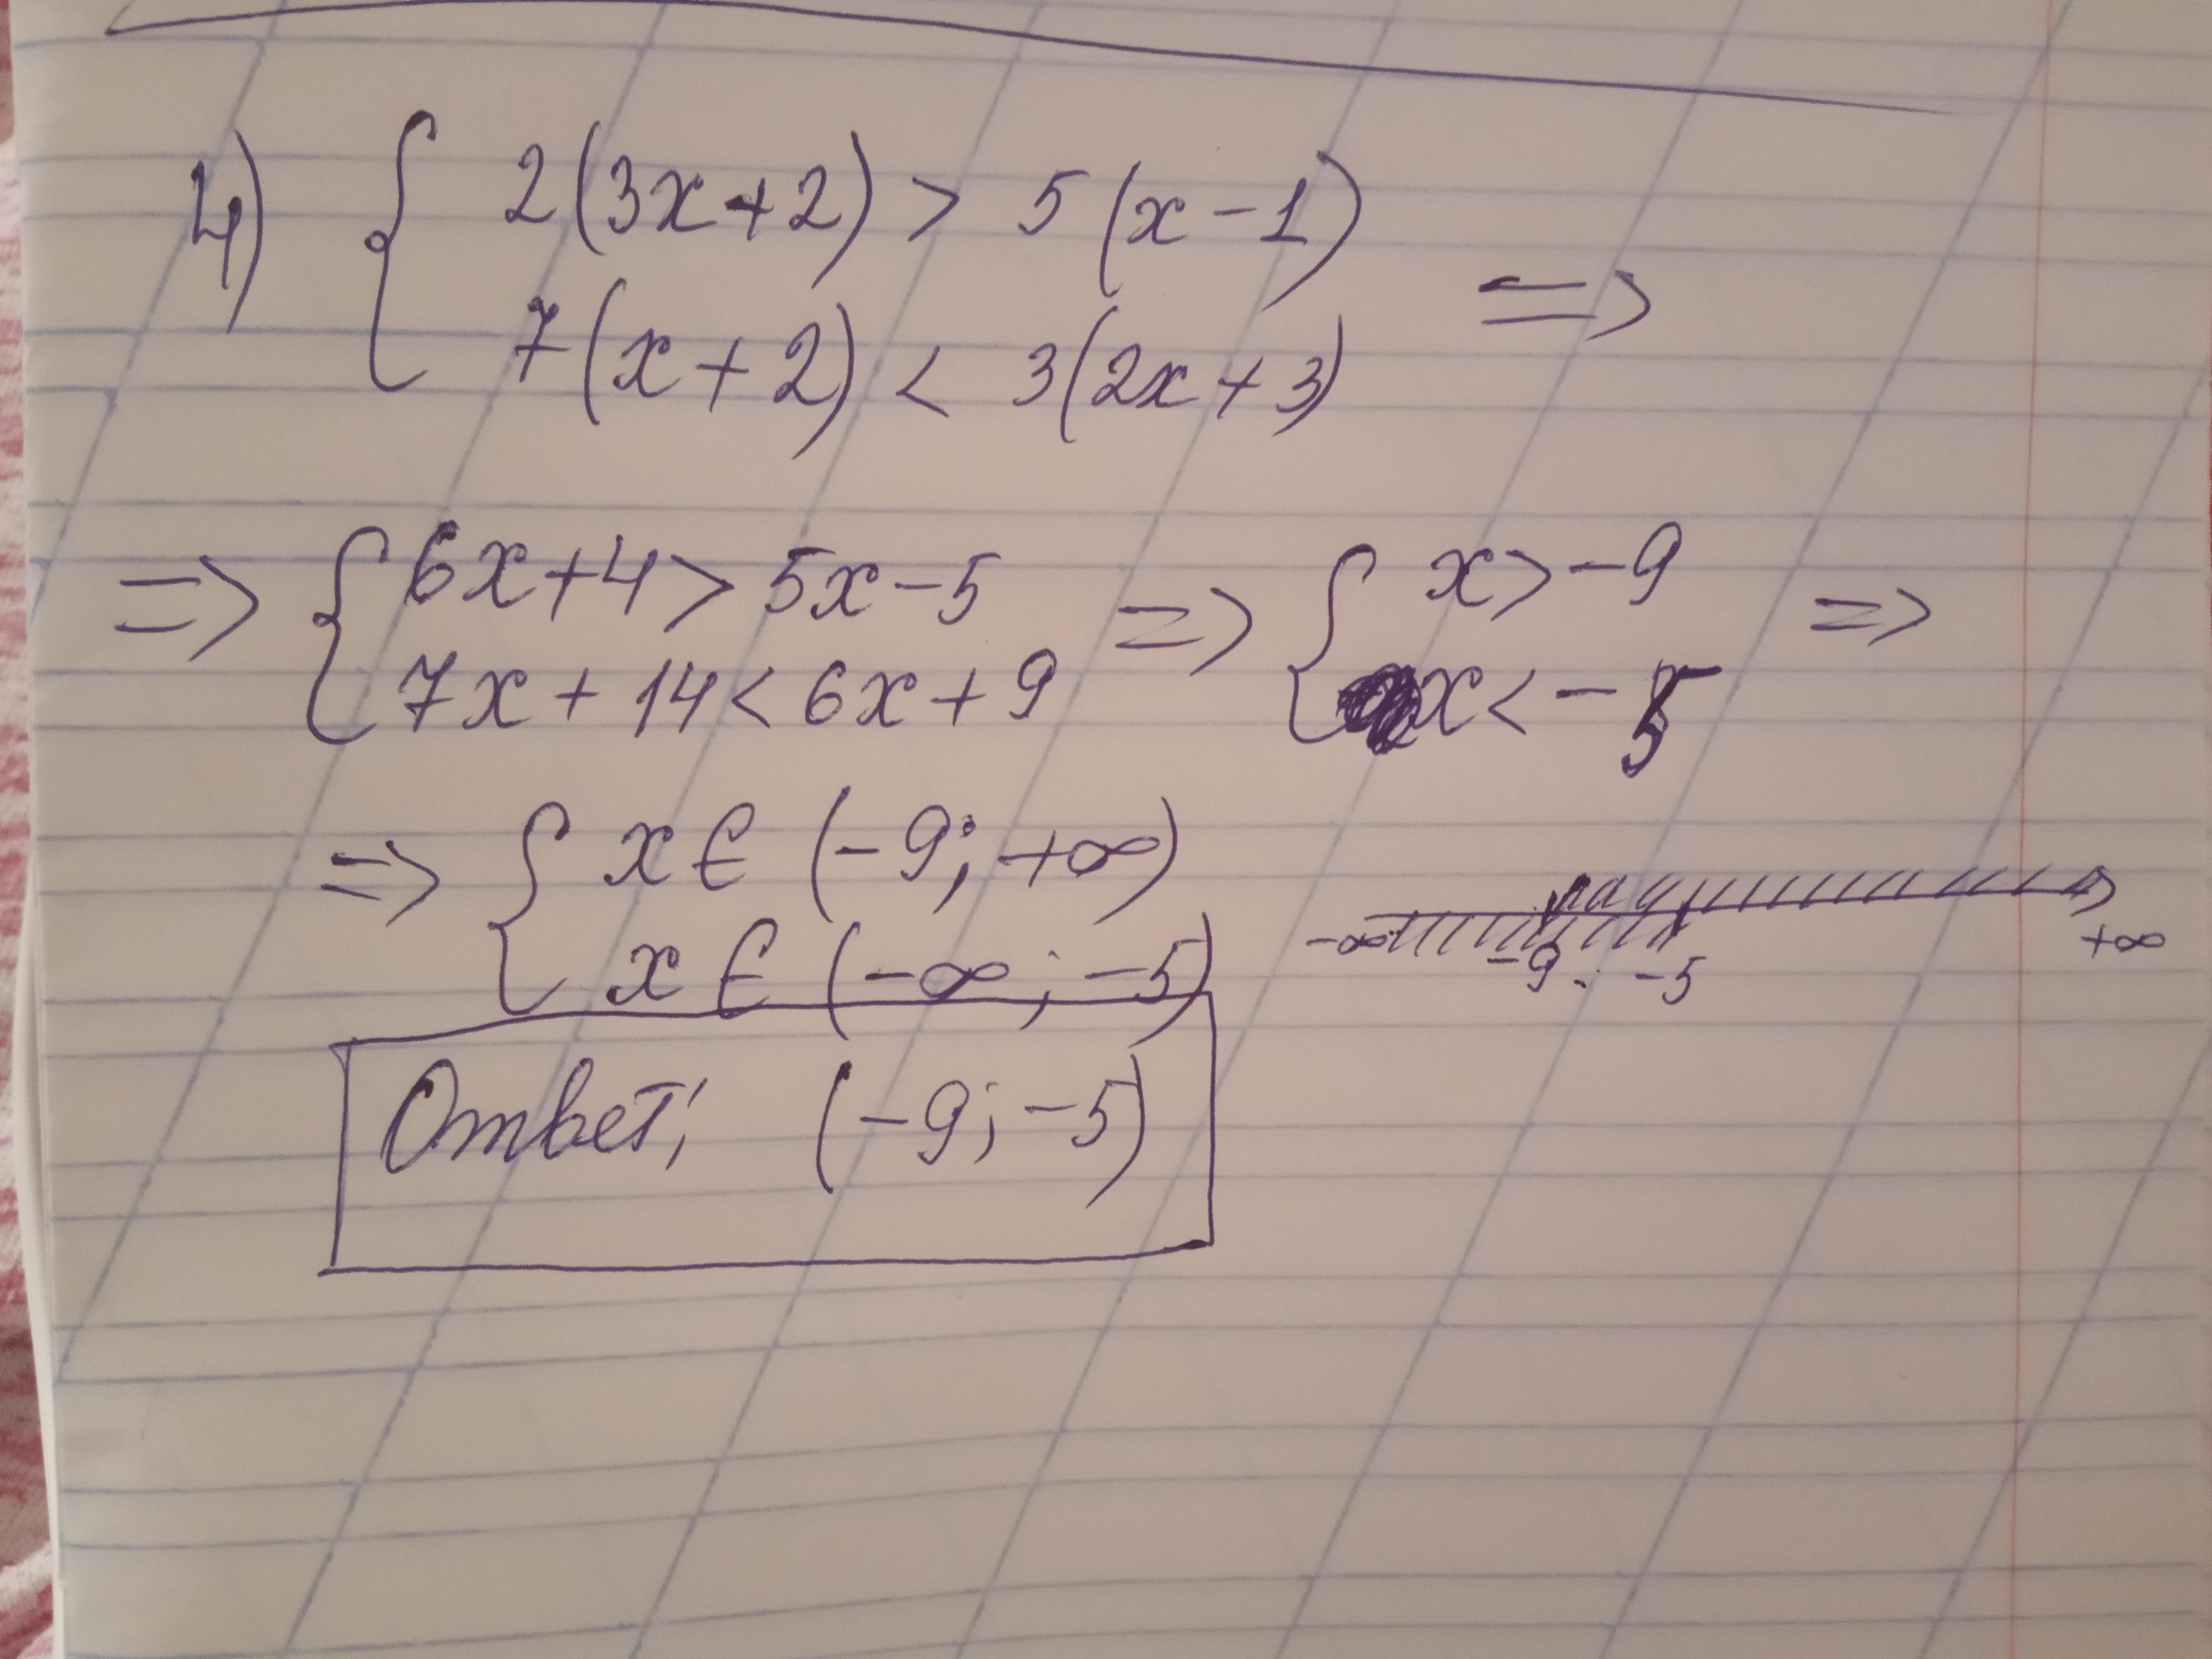 4) { 2(3x+2) > 5(x-1)
7(x+2) < 3(2x+3) =>
=> { 6x+4 > 5x-5 => { x > -9 =>
7x+14 < 6x+9 x < -5
=> { x ∈ (-9; +∞)
x ∈ (-∞; -5)
-∞ -9 -5 +∞
Ответ: (-9; -5)